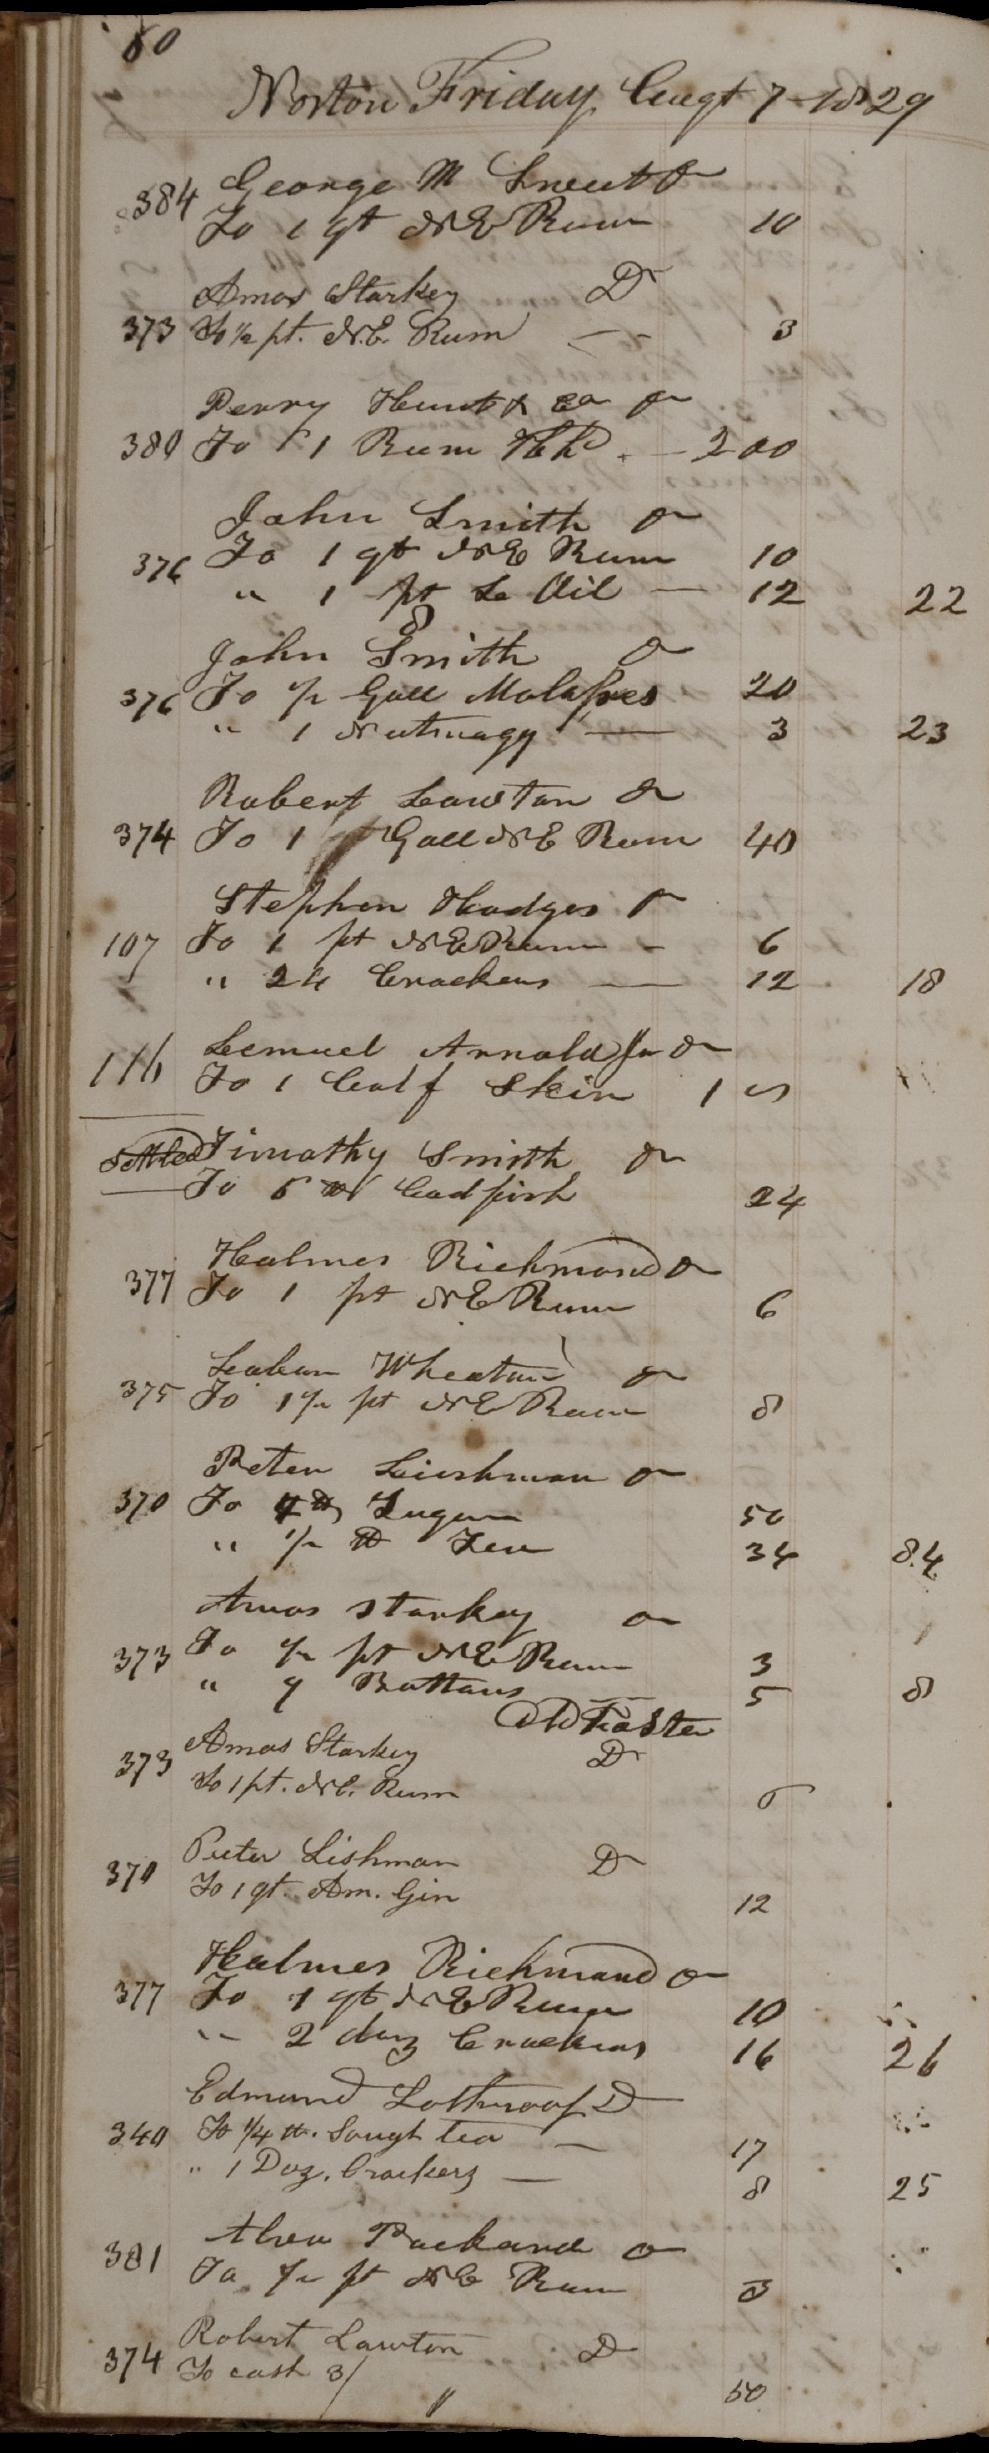 60
Norton Friday Augt 7 1829
384 George M Sneut Dr
To 1 qt N E Rum 10
Amos Starkey Dr
373 To ½ pt. N.E. Rum 3
Perry Hunt & Co Dr
380 To 1 Rum Hhd 2 00
John Smith Dr
376 To 1 qt N E Rum 10
" 1 pt Oil 12 22
John Smith Dr
376 To ½ Gall Molasses 20
" 1 Nutmagg 3 23
Robert Lawton Dr
374 To 1 Gall N E Rum 40
Stephen Hodges Dr
107 To 1 pt N E Rum 6
" 24 Crackers 12 18
116 Lemuel Arnold Jr Dr
To 1 Calf Skin 1
Settled Timothy Smith Dr
To 6 lb Codfish 24
Holmes Richmond Dr
377 To 1 pt N E Rum 6
Laban Wheaton Dr
375 To 1½ pt N E Rum 8
Peter Lishman Dr
370 To lb Sugar 50
" ½ lb Tea 34 84
Amos Starkey Dr
373 To ½ pt N E Rum 3
" 9 Bottons 5 8
Old Toaster
373 Amos Starkey Dr
To 1 pt. N.E. Rum 6
370 Peter Lishman Dr
To 1 qt. Am. Gin 12
Holmes Richmond Dr
377 To 1 qt N E Rum 10
" 2 doz Crackers 16 26
Edmund Lothroop Dr
340 To ¼ lb. Sough tea 17
" 1 Doz. Crackers 8 25
Alva Packard Dr
381 To ½ pt N E Rum 3
Robert Lawton Dr
374 To cash 3/ 50